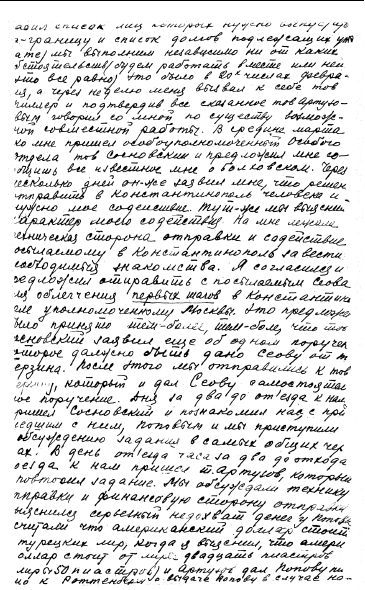 список лиц которых нужно
за-границу и список долгов подлежащих упл
ате) мы выполним независимо ни от каких
обстоятельств (будем работать вместе или нет
это все равно) это было в 20х числах февра-
ля, а через неделю меня вызвал к себе тов
и подтвердив все сказанное тов Артузо-
вым говорил со мной по существу возмож-
ной совместной работы. В средине марта
ко мне пришел особоуполномоченный Особого
Отдела тов Сосновский и предложил мне со-
общить все известное мне о волховском. Через
несколько дней он-же заявил мне, что решен
отправить в Константинополь человека и
нужно мое содействие. Тут-же мы выяснил
характер моего содействия. На мне лежала
техническая сторона отправки и содействие
посылаемому в Константинополь завести
необходимые знакомства. Я согласился и
предложил отправить с посылаемым Сеова
для облегчения первых шагов в Константино
поле уполномоченному Москвы. Это предложе
было принято тем-более, что тов
Сосновский заявил еще об одном поручен
которое должно быть дано Сеову от т
После этого мы отправились к тов
который и дал Сеову самостоятел
ное поручение. Дня за два до от'езда к нам
пришел Сосновский и познакомил нас с при
шедшим с ним, Поповым и мы приступили
обсуждению задания в самых общих чер
тах. В день от'езда часа за два до отхода
поезда к нам пришел т. Артузов, который
повторил задание. Мы обсуждали технику
отправки и финансовую сторону отправки
выяснился серьезный недохват денег у Попова
считали что американский доллар стоит
турецких лир, когда я выяснил, что амери
доллар стоит от двадцать пиастров
лиры 50 пиастров) и Артузов дал Попову пи
мо к о выдаче Попову в случае не-